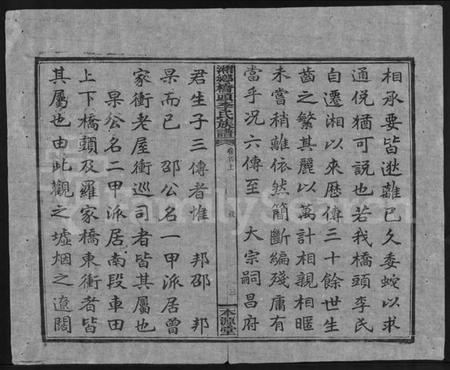 相承要皆逖離已久委蛇以求
通侻猶可説也若我橋頭李氏
自遷湘以來歴傳三十餘世生
齒之繁其麗以萬計相親相暱
未嘗稍離依然簡斷編殘庸有
當乎况六傳至 大宗嗣昌府
湘鄉橋頭李氏族譜
卷首上
三
本源堂
君生子三傳者惟 邦邵 邦
杲而已 邵公名一甲派居曾
家衝老屋衝巡司者皆其屬也
杲公名二甲派居南段車田
上下橋頭及羅家橋東衝者皆
其屬也由此觀之墟烟之遼闊